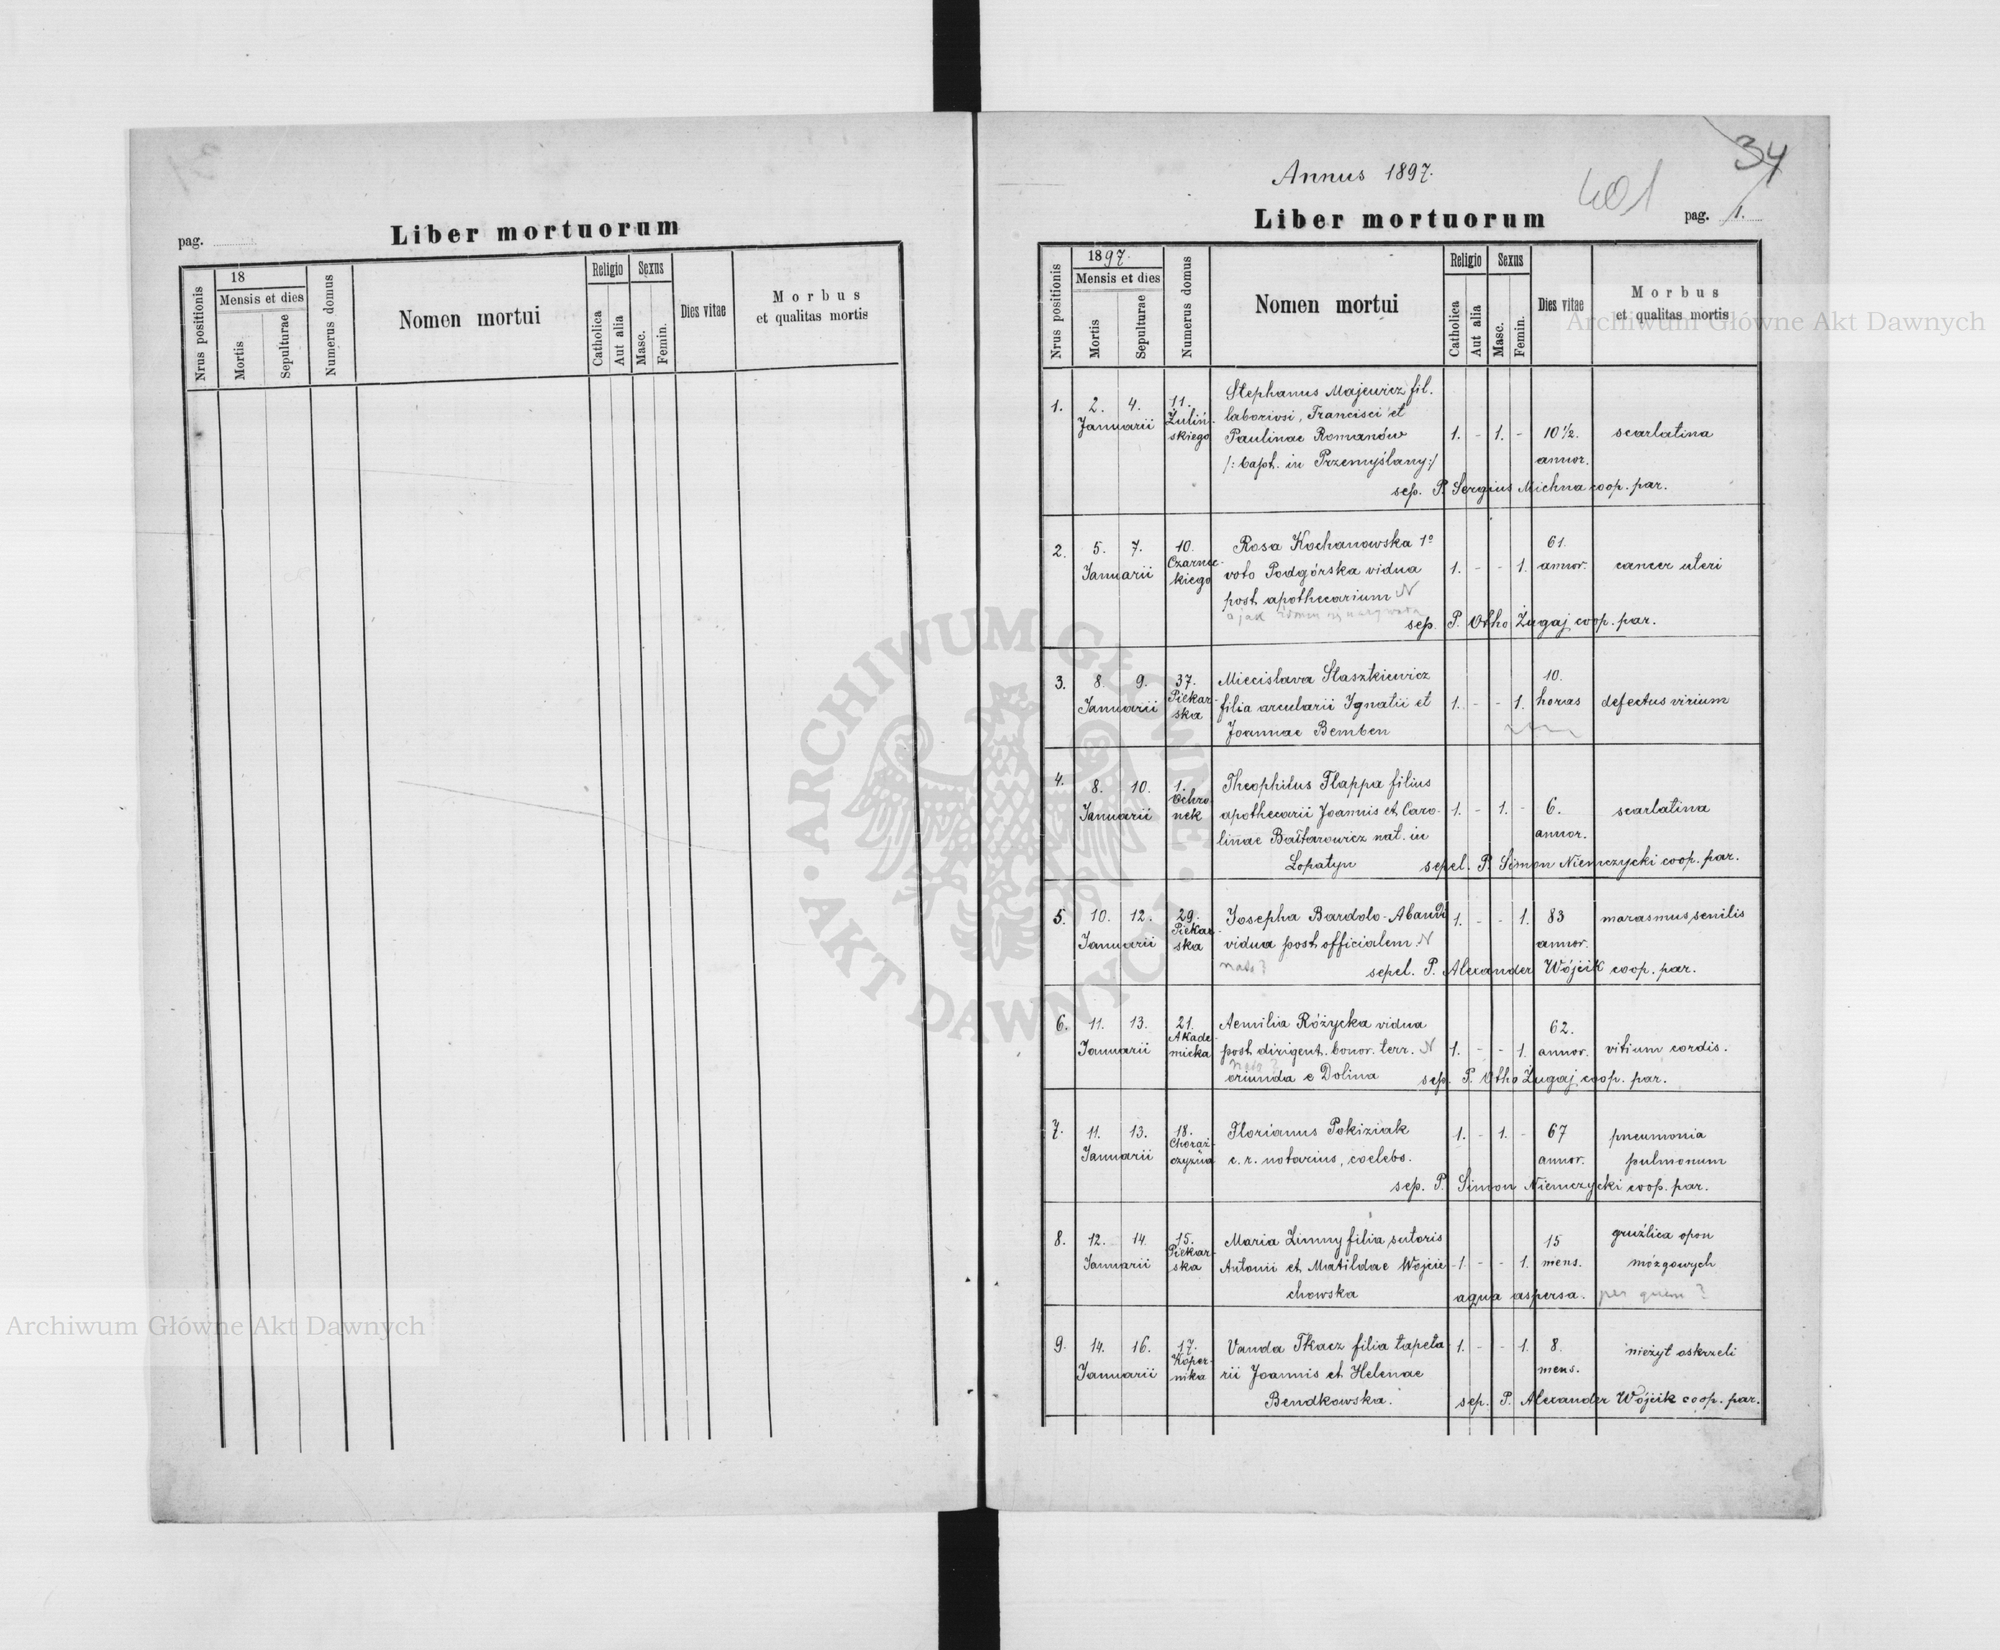 pag.
Liber mortuorum
Nrus positionis
18
Mensis et dies
Mortis
Sepulturae
Numerus domus
Nomen mortui
Religio
Catholica
Aut alia
Sexus
Masc.
Femin.
Dies vitae
Morbus
et qualitas mortis
Annus 1897.
34
401
Liber mortuorum
pag. 1.
Nrus positionis
1897.
Mensis et dies
Mortis
Sepulturae
Numerus domus
Nomen mortui
Religio
Catholica
Aut alia
Sexus
Masc.
Femin.
Dies vitae
Morbus
et qualitas mortis
Stephanus Majewicz fil.
1. 2. 4. 11. laboriosi, Francisci et
Januarii Żuliń-
skiego Paulinae Romanów 1. - 1. - 10½. scarlatina
/: bapt. in Przemyślany :/ annor.
sep. P. Sergius Michna coop. par.
2. 5. 7. 10. Rosa Kochanowska 1º 61.
Januarii Czarnec-
kiego voto Podgórska vidua 1. - - 1. annor. cancer uteri
post apothecarium N
sep. P. Otho Żugaj coop. par.
3. 8. 9. 37. Miecislava Staszkiewicz 10.
Januarii Piekar-
ska filia arcularii Ignatii et 1. - - 1. horas defectus virium
Joannae Bemben
4. 8. 10. 1. Theophilus Flappa filius
Januarii Ochro-
nek apothecarii Joannis et Caro- 1. - 1. - 6. scarlatina
linae Bałtarowicz nat. in annor.
Łopatyn sepel. P. Simon Niemczycki coop. par.
5. 10. 12. 29. Josepha Bardolo-Abandi 1. - - 1. 83 marasmus senilis
Januarii Piekar-
ska vidua post officialem. N annor.
sepel. P. Alexander Wójcik coop. par.
6. 11. 13. 21. Aemilia Różycka vidua 62.
Januarii Akade-
micka post dirigent. bonor. terr. N 1. - - 1. annor. vitium cordis.
oriunda e Dolina sep. P. Otho Żugaj coop. par.
7. 11. 13. 18. Florianus Pokiziak 1. - 1. - 67 pneumonia
Januarii Chorąż-
czyzna c. r. notarius, coelebs. annor. pulmonum
sep. P. Simon Niemczycki coop. par.
8. 12. 14. 15. Maria Zimny filia sutoris 15 gruźlica opon
Januarii Piekar-
ska Antonii et Matildae Wojcie- 1. - - 1. mens. mózgowych
chowska aqua aspersa. per quem?
9. 14. 16. 17. Vanda Tkacz filia tapeta- 1. - - 1. 8. nieżyt oskrzeli
Januarii Koper-
nika rii Joannis et Helenae mens.
Bendkowska. sep. P. Alexander Wójcik coop. par.
Archiwum Główne Akt Dawnych
Archiwum Główne Akt Dawnych
ARCHIWUM GŁÓWNE
AKT DAWNYCH